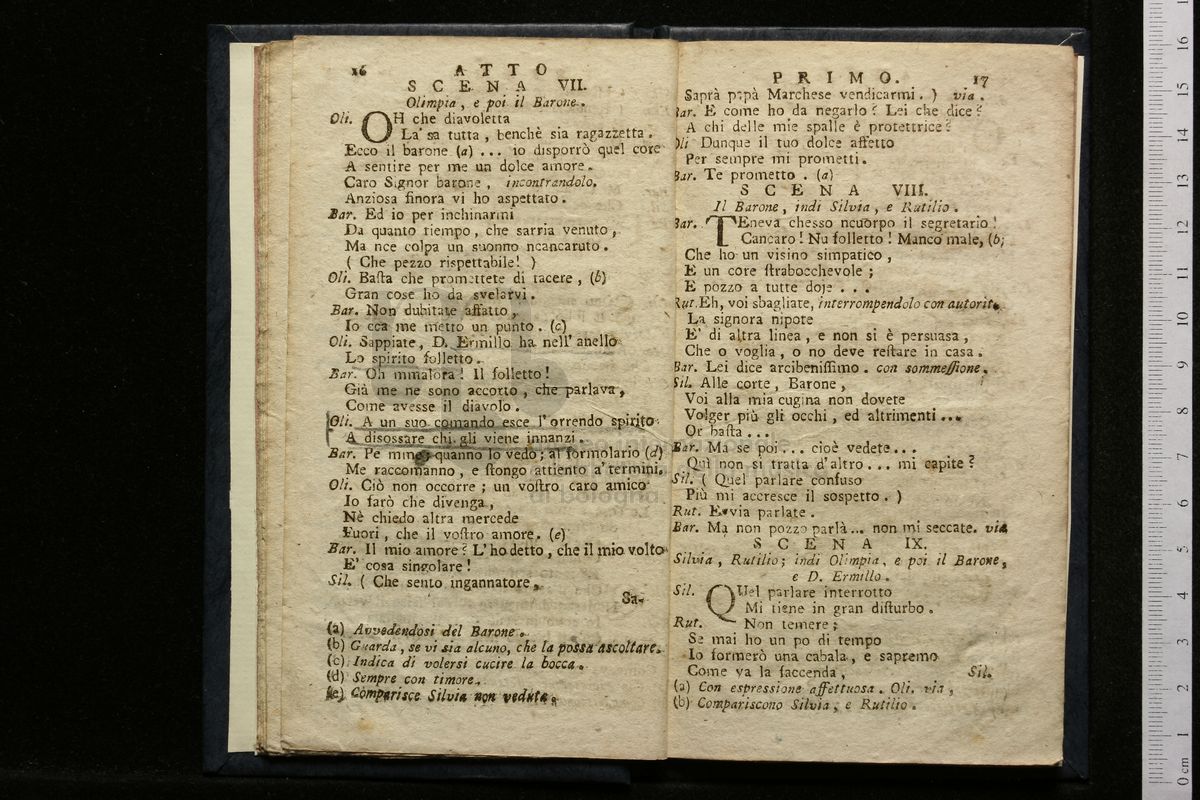 16 ATTO
SCENA VII.
Olimpia, e poi il Barone.
Oli. OH che diavoletta
La sa tutta, benchè sia ragazzetta.
Ecco il barone (a) ... io disporrò quel core
A sentire per me un dolce amore.
Caro Signor barone, incontrandolo.
Anziosa finora vi ho aspettato.
Bar. Ed io per inchinarmi
Da quanto tiempo, che sarria venuto,
Ma nce colpa un suonno ncancaruto.
( Che pezzo rispettabile! )
Oli. Basta che promettete di tacere, (b)
Gran cose ho da svelarvi.
Bar. Non dubitate affatto,
Io cca me metto un punto. (c)
Oli. Sappiate, D. Ermillo ha nell' anello
Lo spirito folletto.
Bar. Oh mmalora! Il folletto!
Già me ne sono accorto, che parlava,
Come avesse il diavolo.
Oli. A un suo comando esce l'orrendo spirito
A disossare chi gli viene innanzi.
Bar. Pe mme, quanno lo vedo; al formolario (d)
Me raccomanno, e stongo attiento a' termini.
Oli. Ciò non occorre; un vostro caro amico
Io farò che divenga,
Nè chiedo altra mercede
Fuori, che il vostro amore. (e)
Bar. Il mio amore? L'ho detto, che il mio volto
E' cosa singolare!
Sil. ( Che sento ingannatore,
Sa-
(a) Avvedendosi del Barone.
(b) Guarda, se vi sia alcuno, che la possa ascoltare.
(c) Indica di volersi cucire la bocca.
(d) Sempre con timore.
(e) Comparisce Silvia non veduta.
PRIMO. 17
Saprà papà Marchese vendicarmi. ) via.
Bar. E come ho da negarlo? Lei che dice?
A chi delle mie spalle è protettrice?
Oli Dunque il tuo dolce affetto
Per sempre mi prometti.
Bar. Te prometto. (a)
SCENA VIII.
Il Barone, indi Silvia, e Rutilio.
Bar. TEneva chesso ncuorpo il segretario!
Cancaro! Nu folletto! Manco male, (b)
Che ho un visino simpatico,
E un core strabocchevole;
E pozzo a tutte doje ...
Rut. Eh, voi sbagliate, interrompendolo con autorit.
La signora nipote
E' di altra linea, e non si è persuasa,
Che o voglia, o no deve restare in casa.
Bar. Lei dice arcibenissimo. con sommessione.
Sil. Alle corte, Barone,
Voi alla mia cugina non dovete
Volger più gli occhi, ed altrimenti ...
Or basta ...
Bar. Ma se poi ... cioè vedete ...
Quì non si tratta d'altro ... mi capite?
Sil. ( Quel parlare confuso
Più mi accresce il sospetto. )
Rut. Evvia parlate.
Bar. Ma non pozzo parlà ... non mi seccate. via
SCENA IX.
Silvia, Rutilio; indi Olimpia, e poi il Barone,
e D. Ermillo.
Sil. QUel parlare interrotto
Mi tiene in gran disturbo.
Rut. Non temere;
Se mai ho un po di tempo
Io formerò una cabala, e sapremo
Come va la faccenda, Sil.
(a) Con espressione affettuosa. Oli. via,
(b) Compariscono Silvia, e Rutilio.